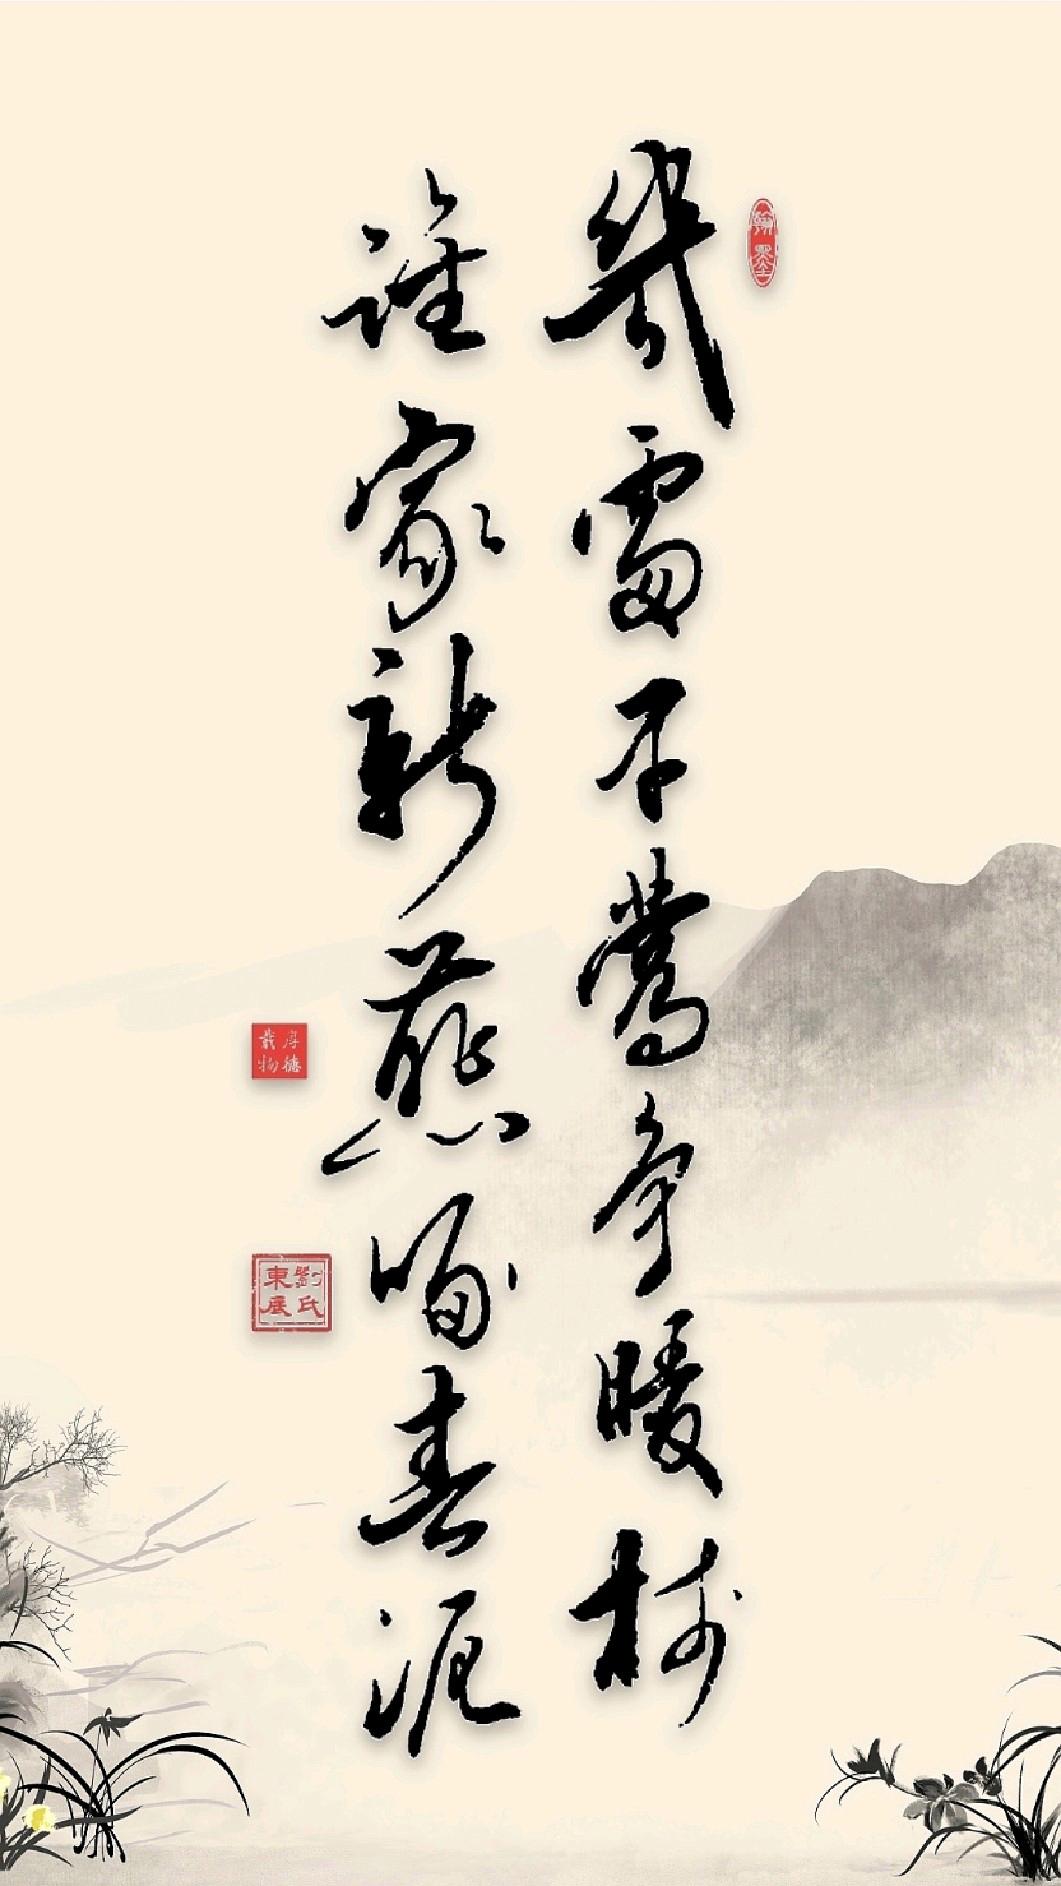 翰墨
幾處早鶯爭暖樹
誰家新燕啄春泥
厚德
載物
劉氏
東